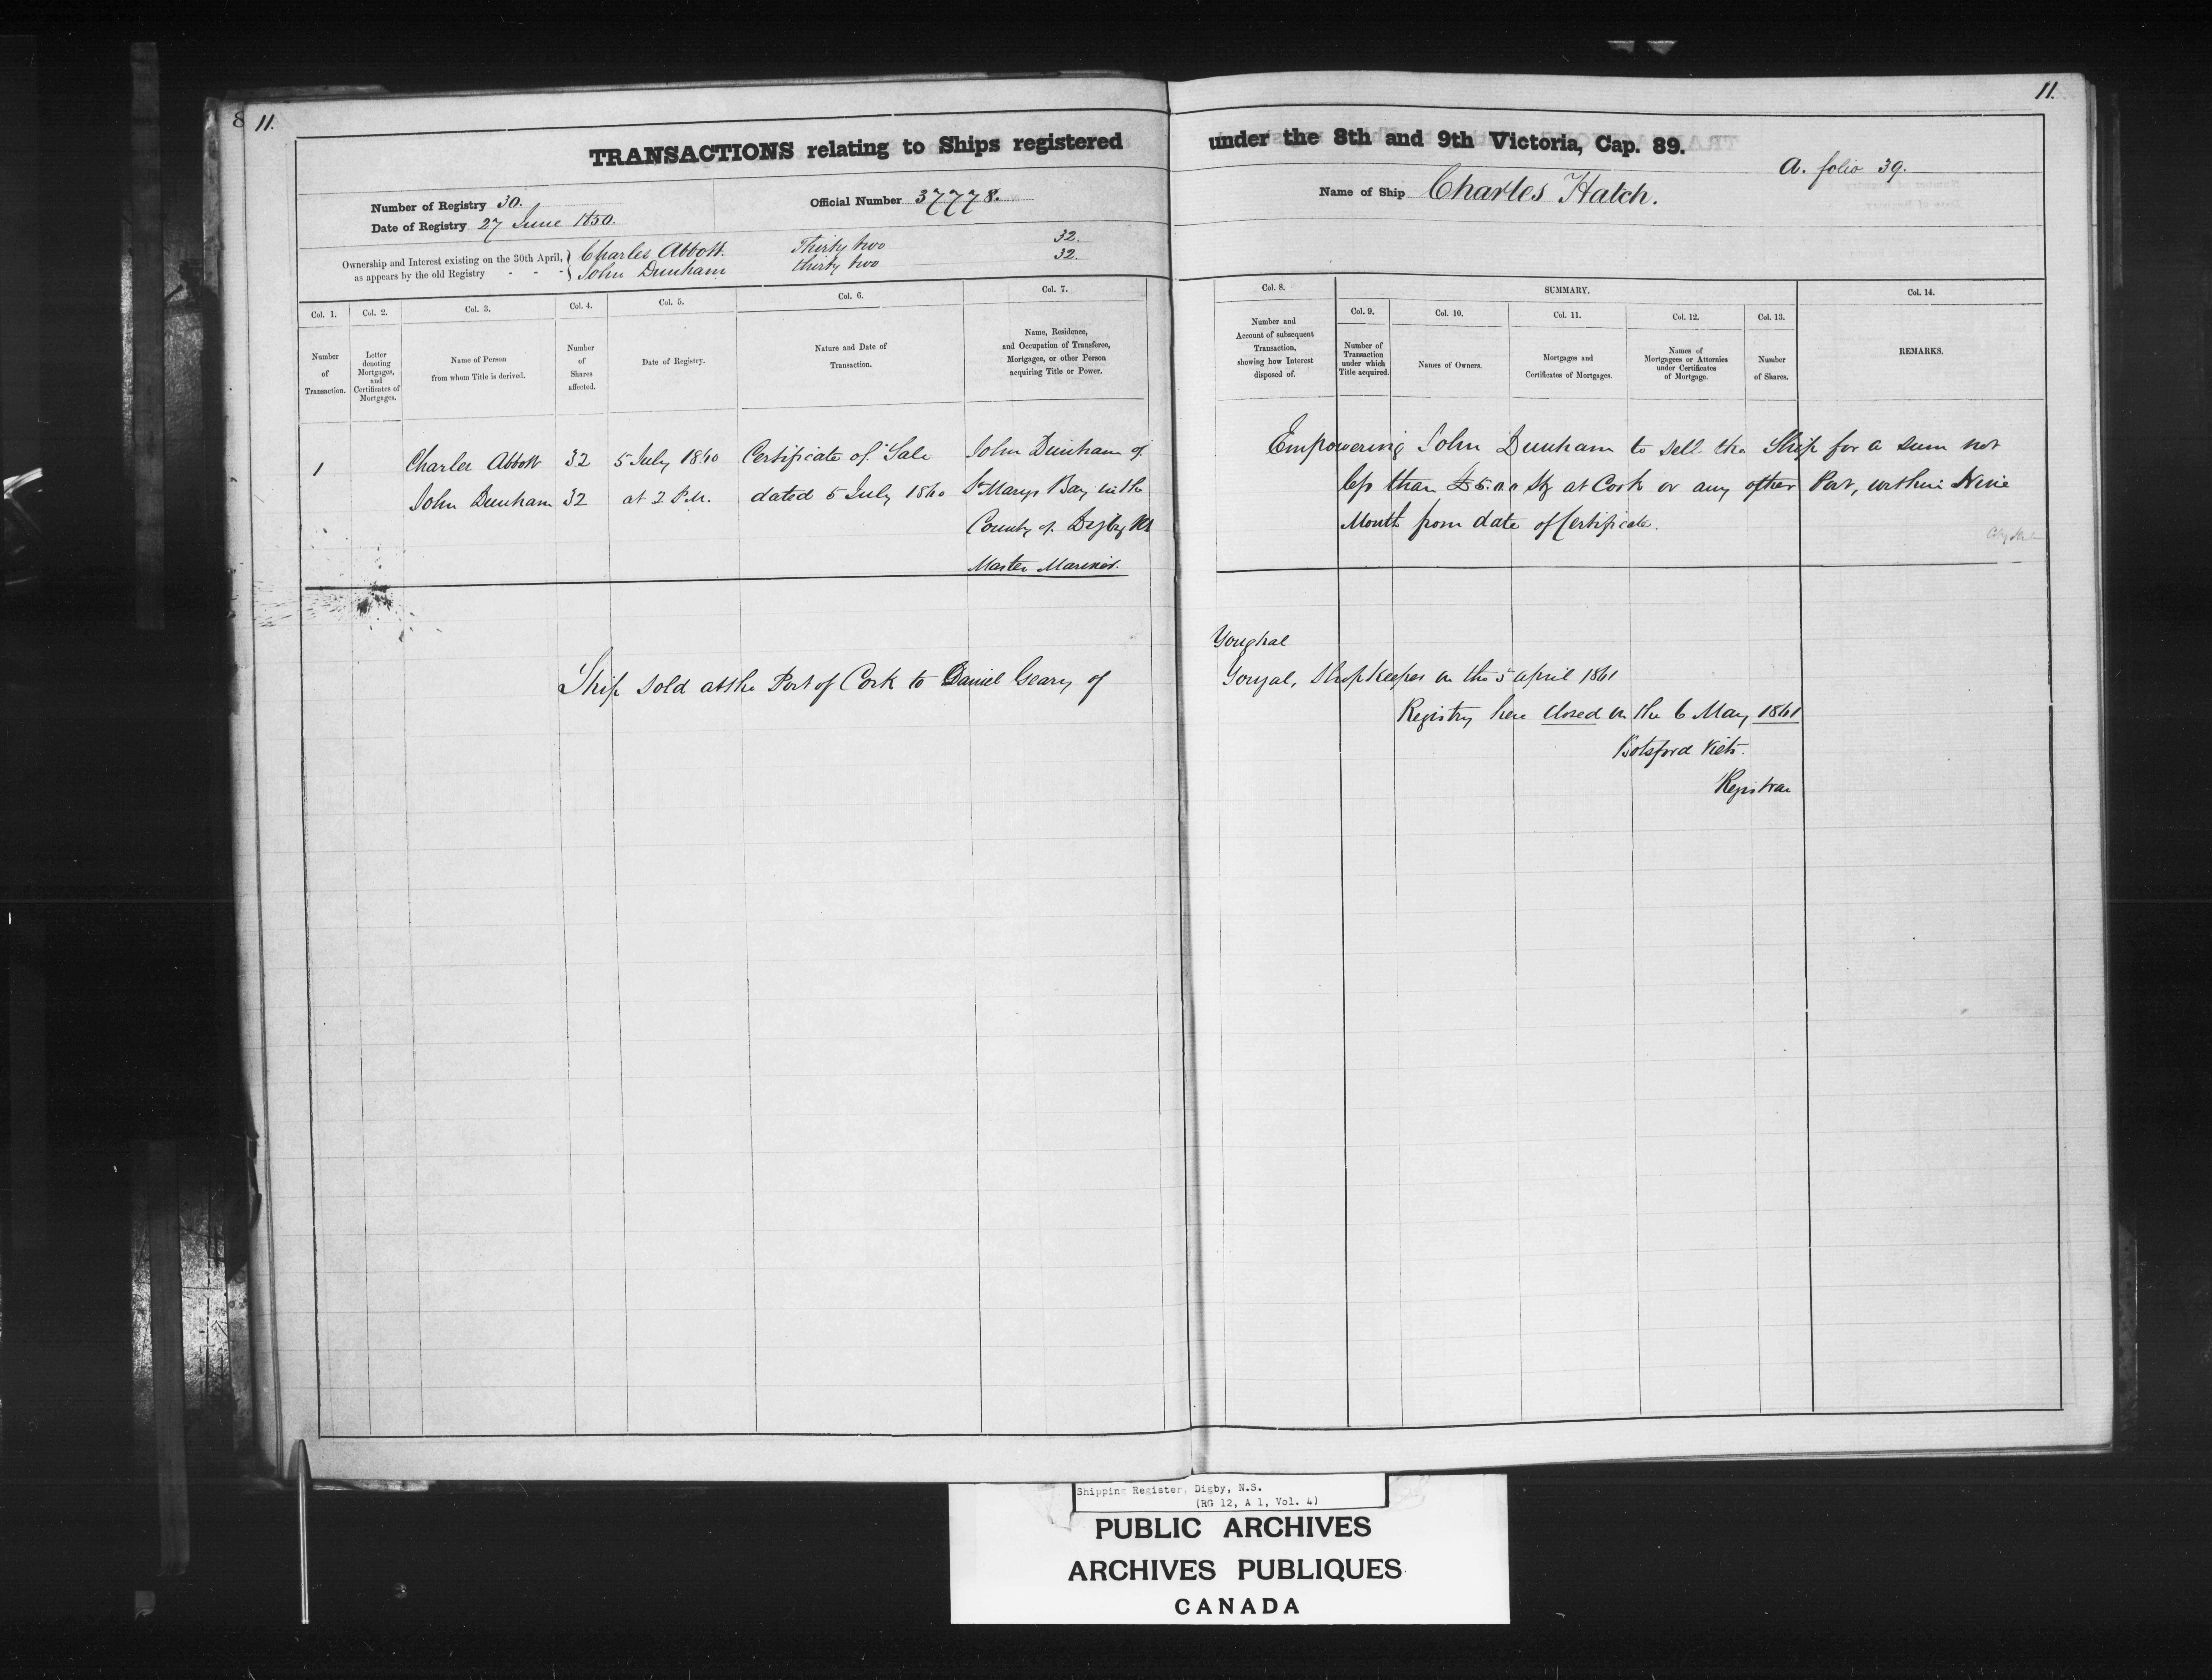 11.
11.
TRANSACTIONS relating to Ships registered under the 8th and 9th Victoria, Cap. 89.
A. folio 39.
Number of Registry 30.
Official Number 37778.
Name of Ship Charles Hatch.
Date of Registry 27 June 1850.
Ownership and Interest existing on the 30th April, as appears by the old Registry - - -
Charles Abbott. Thirty two 32.
John Dunham thirty two 32.
Col. 1. Number of Transaction.
Col. 2. Letter denoting Mortgages, and Certificates of Mortgages.
Col. 3. Name of Person from whom Title is derived.
Col. 4. Number of Shares affected.
Col. 5. Date of Registry.
Col. 6. Nature and Date of Transaction.
Col. 7. Name, Residence, and Occupation of Transferee, Mortgagee, or other Person acquiring Title or Power.
Col. 8. Number and Account of subsequent Transaction, showing how Interest disposed of.
SUMMARY.
Col. 9. Number of Transaction under which Title acquired.
Col. 10. Names of Owners.
Col. 11. Mortgages and Certificates of Mortgages.
Col. 12. Names of Mortgagees or Attornies under Certificates of Mortgage.
Col. 13. Number of Shares.
Col. 14. REMARKS.
1 Charles Abbott 32 5 July 1860 Certificate of Sale John Dunham of
John Dunham 32 at 2 P.M. dated 5 July 1860 St Marys Bay in the
County of Digby NS
Master Mariner.
Empowering John Dunham to sell the Ship for a sum not
less than £ Stg at Cork or any other Port, within Nine
Month from date of Certificate.
Youghal
Ship sold at the Port of Cork to Daniel Geary of Yougal, Shop Keeper on the 5 April 1861
Registry here closed on the 6 May 1861
Botsford Viets
Registrar
Shipping Register, Digby, N.S.
(RG 12, A 1, Vol. 4)
PUBLIC ARCHIVES
ARCHIVES PUBLIQUES
CANADA